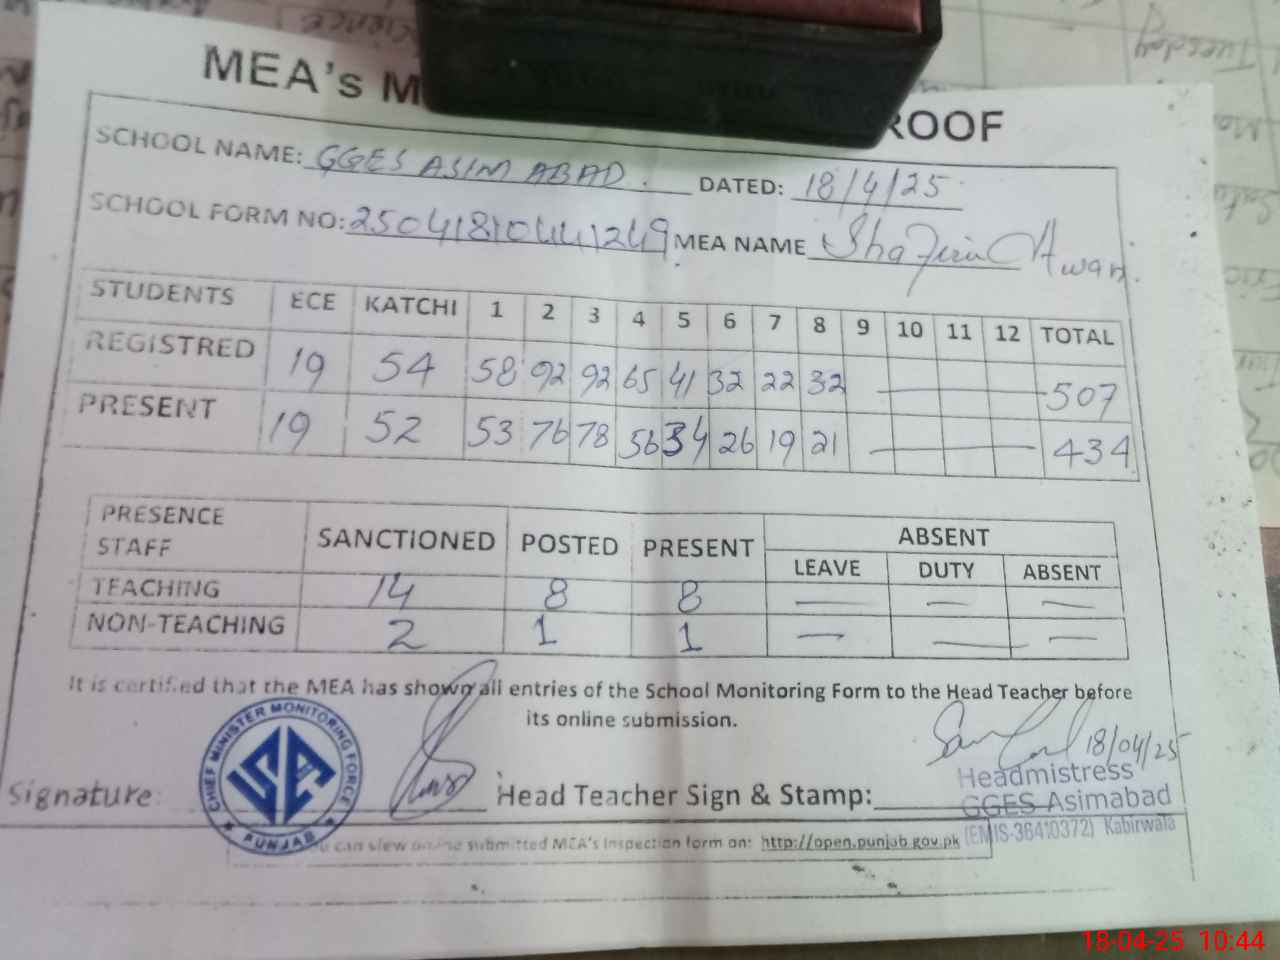 MEA's M ROOF
SCHOOL NAME: GGES ASIM ABAD. DATED: 18/4/25
SCHOOL FORM NO: MEA NAME Awan.
STUDENTS ECE KATCHI 1 2 3 4 5 6 7 8 9 10 11 12 TOTAL
REGISTRED 19 54 58 92 92 65 41 32 22 32 — 507
PRESENT 19 52 53 76 78 56 34 26 19 21 — 434
PRESENCE STAFF SANCTIONED POSTED PRESENT ABSENT
LEAVE DUTY ABSENT
TEACHING 14 8 8 — — —
NON-TEACHING 2 1 1 — — —
It is certified that the MEA has shown all entries of the School Monitoring Form to the Head Teacher before
its online submission.
CHIEF MINISTER MONITORING FORCE
PUNJAB
18/04/25
Signature: Head Teacher Sign & Stamp:
Headmistress
GGES Asimabad
(EMIS-36410372) Kabirwala
ou can view online submitted MEA's inspection form on: http://open.punjab.gov.pk
Tuesday
18-04-25 10:44